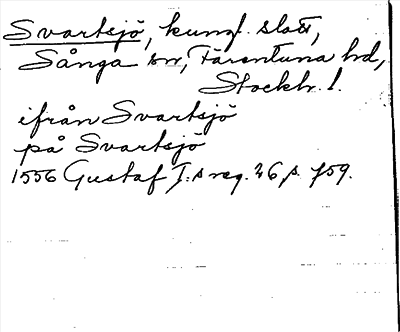 Svartsjö, kungl. slott,
Sånga sn, Färentuna hd,
Stockh. l.
ifrån Svartsjö
på Svartsjö
1556 Gustaf I:s reg. 26 s. 759.